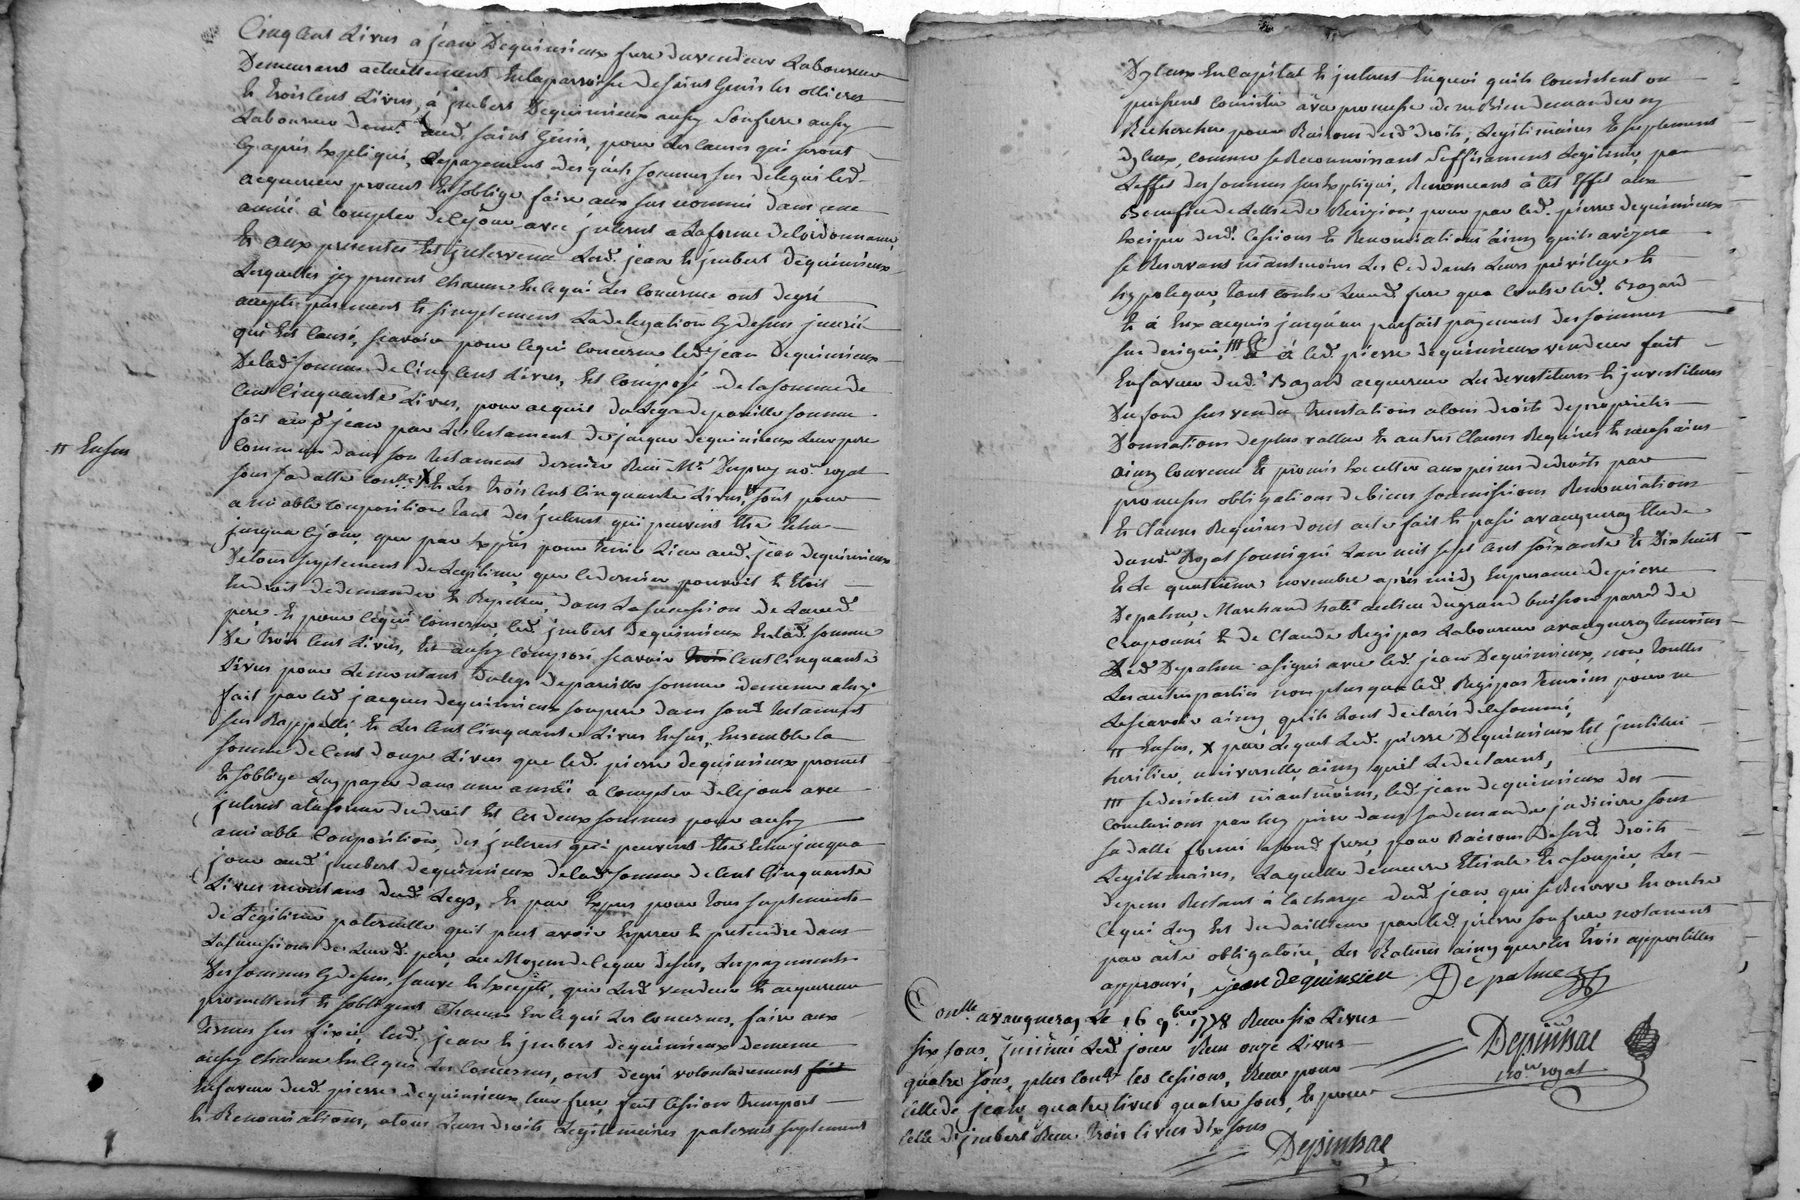 Cinq Cent Livres a jean Dequinsieux frere du vendeur Laboureur
Demeurant actuellement En la parroisse de saint Genis les ollieres
Et trois Cent Livres, à jmbert Dequinsieux aussy son frere aussy
Laboureur demt aud. saint Genis, pour Les Causes qui seront
Cy après Expliqué, Le payement des quels sommes sus delegué led.
acquereur promet Et soblige faire aux sus nommé dans une
année à Compter de Ce jour avec jnterest a La forme de Lordonnance
Et aux presentes Est jntervenu Lesd. jean Et jmbert Dequinsieux
Lesquelles jcy present Chacun En Ce qui Les Concerne ont de gré
accepté purement Et simplement La delegation Cy dessus
qui Est Causé, scavoir pour Ce qui Concerne led. jean Dequinsieux
De lad. somme de Cinq Cent Livres, Est Composé de la somme de
Cent Cinquante Livres, pour acquit du Legs de pareille somme
fait aud. jean par Le testament de jacque dequinsieux Leur pere
Commun dans son testament dernier Reçu Me Dupuy nore royal
sous sa datte Conllé X Et Les trois Cent Cinquante Livres π sont pour
amiable Composition tant des jnterest qui peuvent Etre Echu
jusqua Ce jour, que par Exprès pour tenir Lieu aud. jean dequinsieux
De tous suplement de Legitime que Ce dernier pouvoit Et Etoit
En droit de demander Et Repetter, dans La succession de Leurd.
pere. Et pour Ce qui Concerne led. jmbert dequinsieux En lad. somme
De trois Cent Livres, Est aussy Composé scavoir trois Cent Cinquante
Livres pour Le montant du Legs de pareille somme de meme aluy
fait par led. jacques dequinsieux son pere dans sond. testament
sus Rappellé, Et Les Cent Cinquante Livres En sus, Ensemble La
somme de Cent douze Livres que led. pierre dequinsieux promet
Et soblige Luy payer dans une année a Compter de Ce jour avec
jnterest a la forme de droit Est Ces deux sommes pour aussy
amiable Composition, des jnterest qui peuvent Etre Echu jusqua
jour aud. jmbert dequinsieux de lad. somme de Cent Cinquante
Livres montant dud. Legs, Et par Expres pour tous suplements
de Legitime paternelle quil peut avoir Esperer Et pretendre dans
La succession de Leurd. pere, au Moyen de Ce que dessus, Les payements
Des sommes Cy dessus, sauve Et Excepté, que Lesd. vendeur Et acquereur
promettent Et sobligent Chacun En Ce qui Les Concernes, faire aux
termes sus fixé, lesd. jean Et jmbert dequinsieux de meme
aussy Chacun En Ce qui Les Concerne, ont de gré volontairement fait
En faveur dud. pierre dequinsieux leur frere, fait Cession transport
Et Renonciations, atous Leurs droits Legitimaires paternels suplement
π En sus
D'yceux En Capital Et jnterest En quoi quils Consistent ou
puissent Consister avec promesse de ne Rien demander ny
Rechercher pour Raisons desd. droits, Legitimaires Et suplement
dyceux, comme se Reconnoissant suffisament Legitimé, par
Leffet des sommes sus Expliqué, Renonceant à Cet Effet aux
Benefice de Lettre de Revision, pour par led. pierre dequinsieux
des d. Cessions Et Renonciations ainsy quil avisera
se Reservant neantmoins Les Cedants Leurs privilege Et
hypoteque, tant Contre Leurd. frere que Contre led. Bazard
Et à Eux acquis jusquau parfait payement des sommes
sus designé, III Et à led. pierre dequinsieux vendeur fait
En faveur dud. Bazard acquereur Les devestitures Et jnvestitures
Du fond sus vendu translations atous droits de proprietés
Donnations de plus vallue Et autres Clauses Requises Et necessaires
ainsy Convenu Et promis Executter aux peines de droits par
promesses obligations de biens soumissions Renonciations
Et Clauses Requises dont acte fait Et passé avaugneray Etude
du nore Royal soussigné Lan mil sept Cent soixante Et Dix huit
Et Le quatrieme novembre après midy En presence de pierre
Depalme, Marchand habt au lieu du grand buisson parr.d de
Craponne Et de Claude Regipas Laboureur avaugneray temoins
Led. Depalme asigné avec led. jean Dequinsieux, non touttes
Les autres parties non plus que led. Regipas temoins pour ne
Le scavoir ainsy quils Lont declarés de Ce sommé,
π En sus, X par Lequel Led. pierre Dequinsieux Est jnstitué
heritier universelle, ainsy quil Le declarent,
III se desistent neantmoins, led. jean dequinsieux des
Conclusions par luy prise dans sa demande judiciere sous
sa datte formé asond. frere, pour Raisons desesd. droits
Legitimaires, Laquelle demeure Eteinte Et assoupie, Les
depens Restant à la charge dud. jean, qui se Reserve En outre
Ce qui Luy Est du dailleur par led. pierre son frere notament
par acte obligatoire, Les Ratures ainsy que les trois appostilles
approuvé, jean dequinsieu Depalme
Conllé avaugneray Le 16 9bre 1778 Reçu six Livres
six sous, jnsinué Led. jour Reçu onze Livres
quatre sous, plus Conllé Les Cessions, Reçu pour
Celle de jean, quatre Livres quatre sous, Et pour
Celle d'jmbert Reçu trois Livres dix sous
Depinsac
nore royal
Depinsac